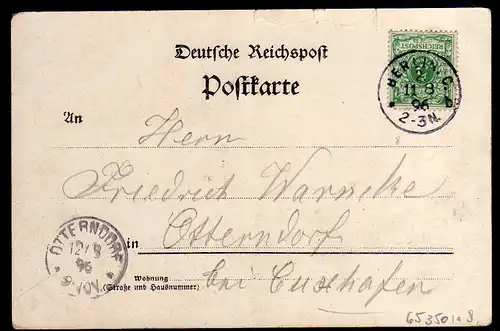 Deutsche Reichspost
Postkarte
REICHSPOST
BERLIN C.
11 8
96
2-3N.
An
Herrn
Friedrich Warncke
in Otterndorf
Wohnung
(Straße und Hausnummer)
bei Cuxhafen
OTTERNDORF
12/8
96
VOV.
65350